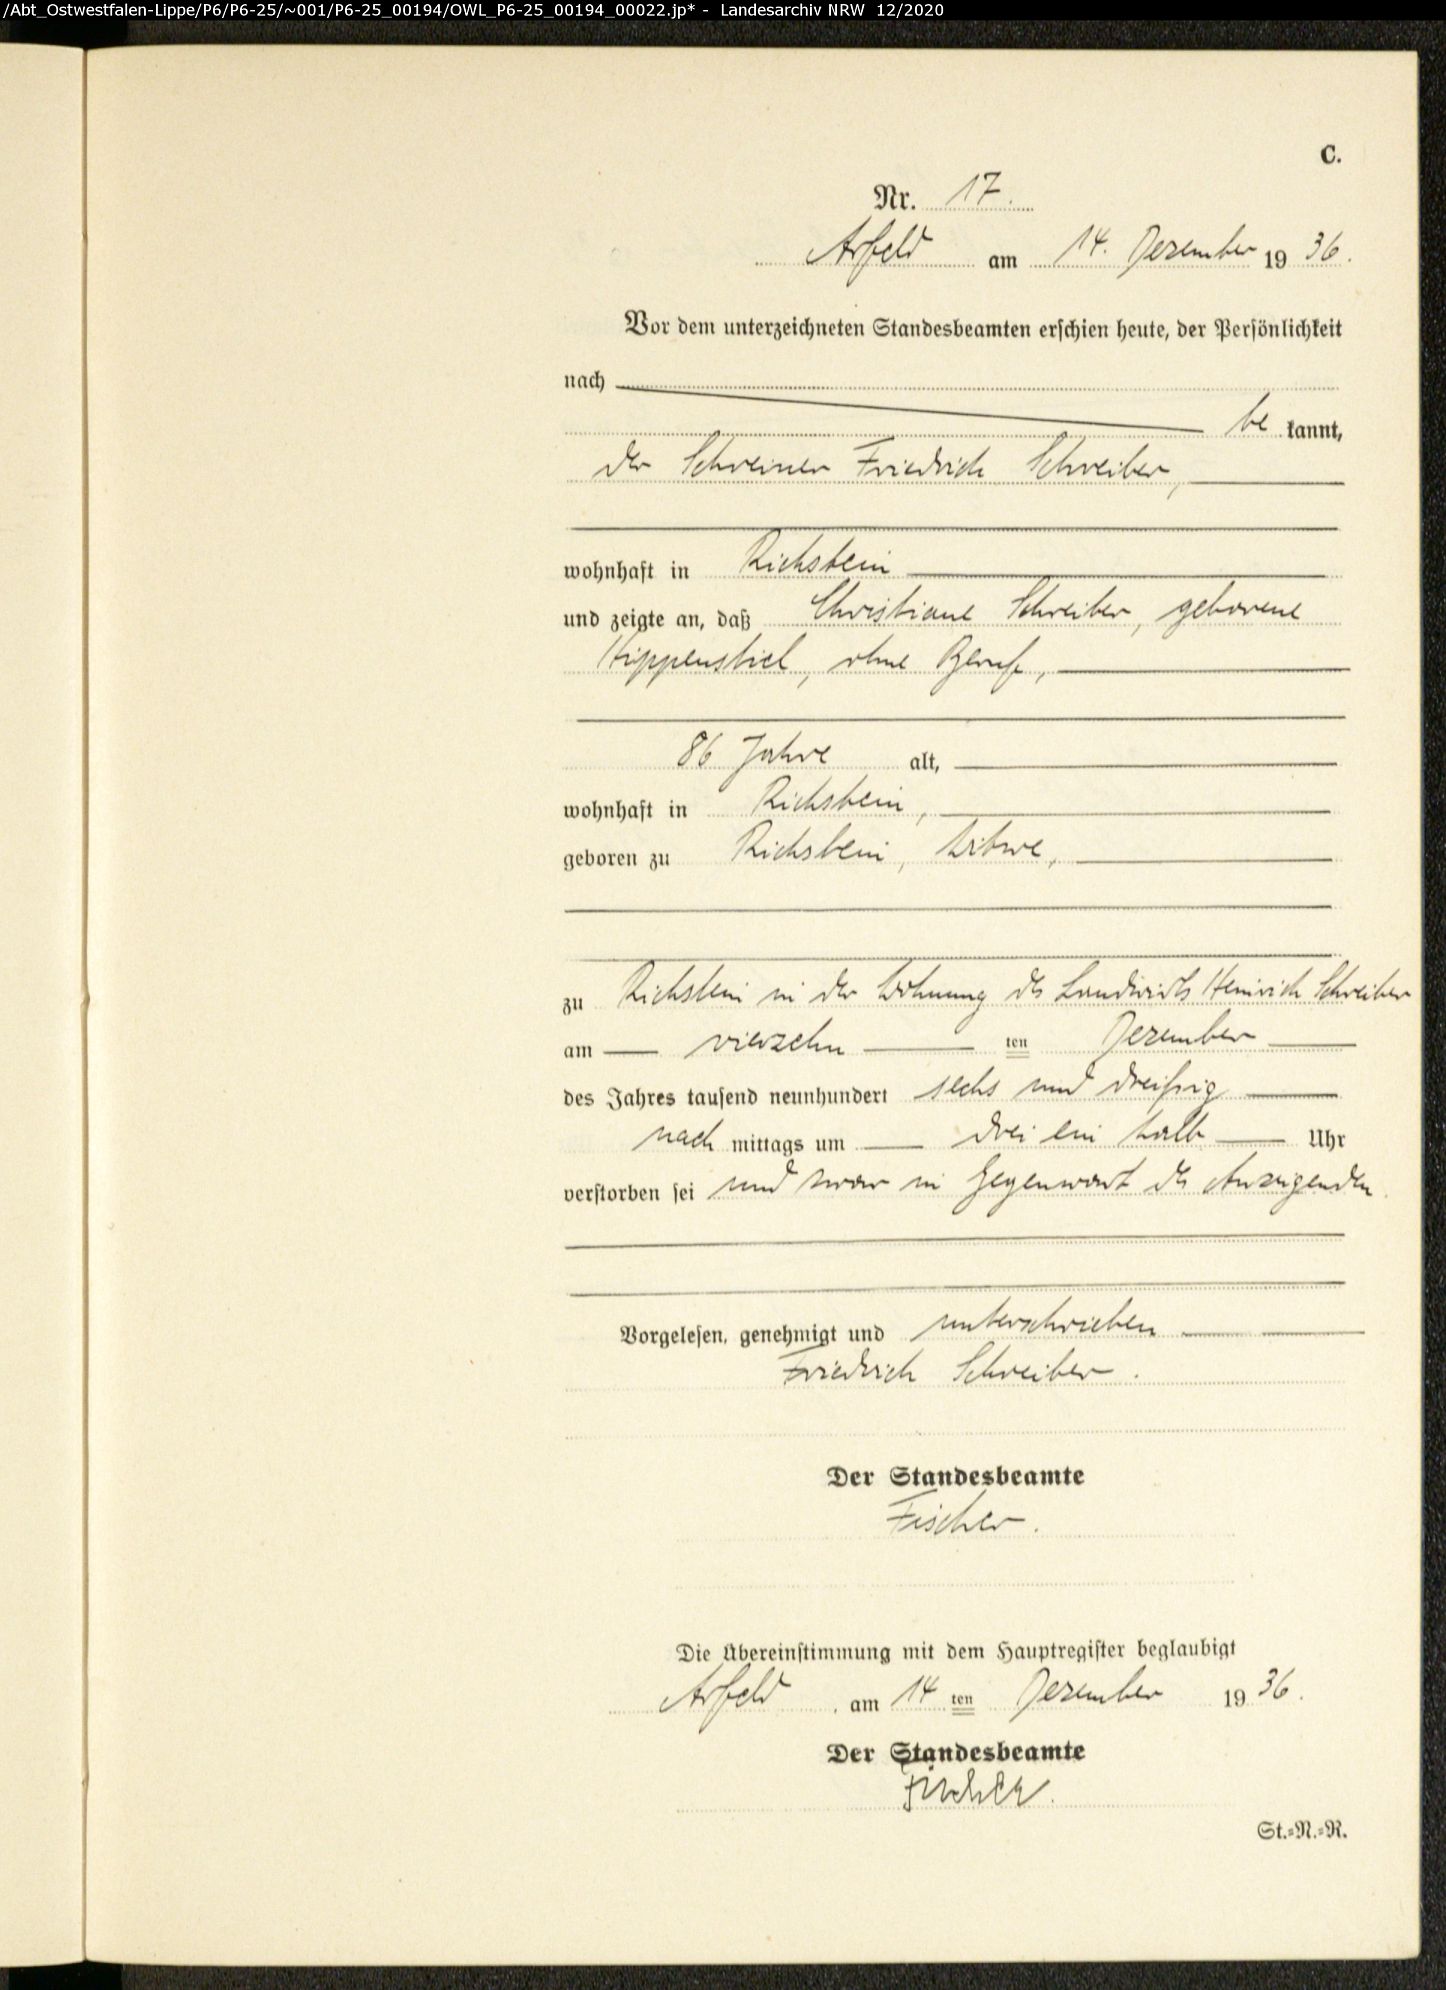 /Abt_Ostwestfalen-Lippe/P6/P6-25/~001/P6-25_00194/OWL_P6-25_00194_00022.jp* - Landesarchiv NRW 12/2020
C.
Nr. 17.
Arfeld am 14. Dezember 19 36.
Vor dem unterzeichneten Standesbeamten erschien heute, der Persönlichkeit
nach
be kannt,
der Schreiner Friedrich Schreiber,
wohnhaft in Richstein
und zeigte an, daß Christiane Schreiber, geborene
Hippenstiel, ohne Beruf,
86 Jahre alt,
wohnhaft in Richstein,
geboren zu Richstein, Witwe,
zu Richstein in der Wohnung des Landwirts Heinrich Schreiber
am vierzehn ten Dezember
des Jahres tausend neunhundert sechs und dreißig
nach mittags um drei ein halb Uhr
verstorben sei und zwar in Gegenwart des Anzeigenden
Vorgelesen, genehmigt und unterschrieben
Friedrich Schreiber.
Der Standesbeamte
Fischer.
Die Übereinstimmung mit dem Hauptregister beglaubigt
Arfeld, am 14 ten Dezember 19 36.
Der Standesbeamte
Fischer.
St.=N.=R.